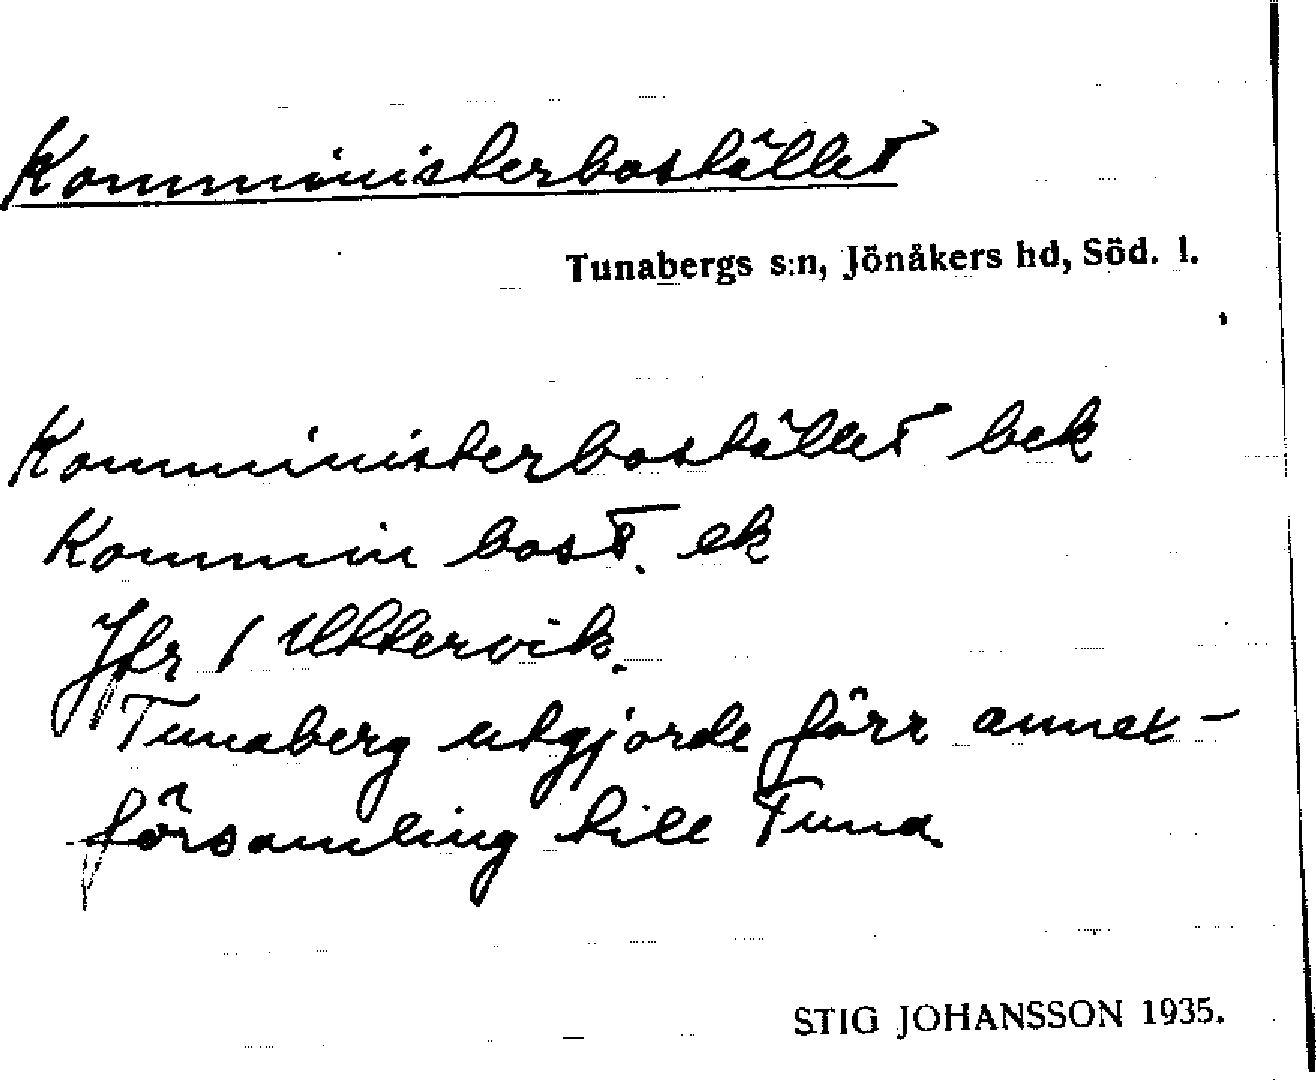 Komministerbostället
Tunabergs s:n, Jönåkers hd, Söd. l.
Komministerbostället bek
Kommin bost. ek
Jfr / Uttervik.
Tunaberg utgjorde förr annex-
församling till Tuna.
STIG JOHANSSON 1935.